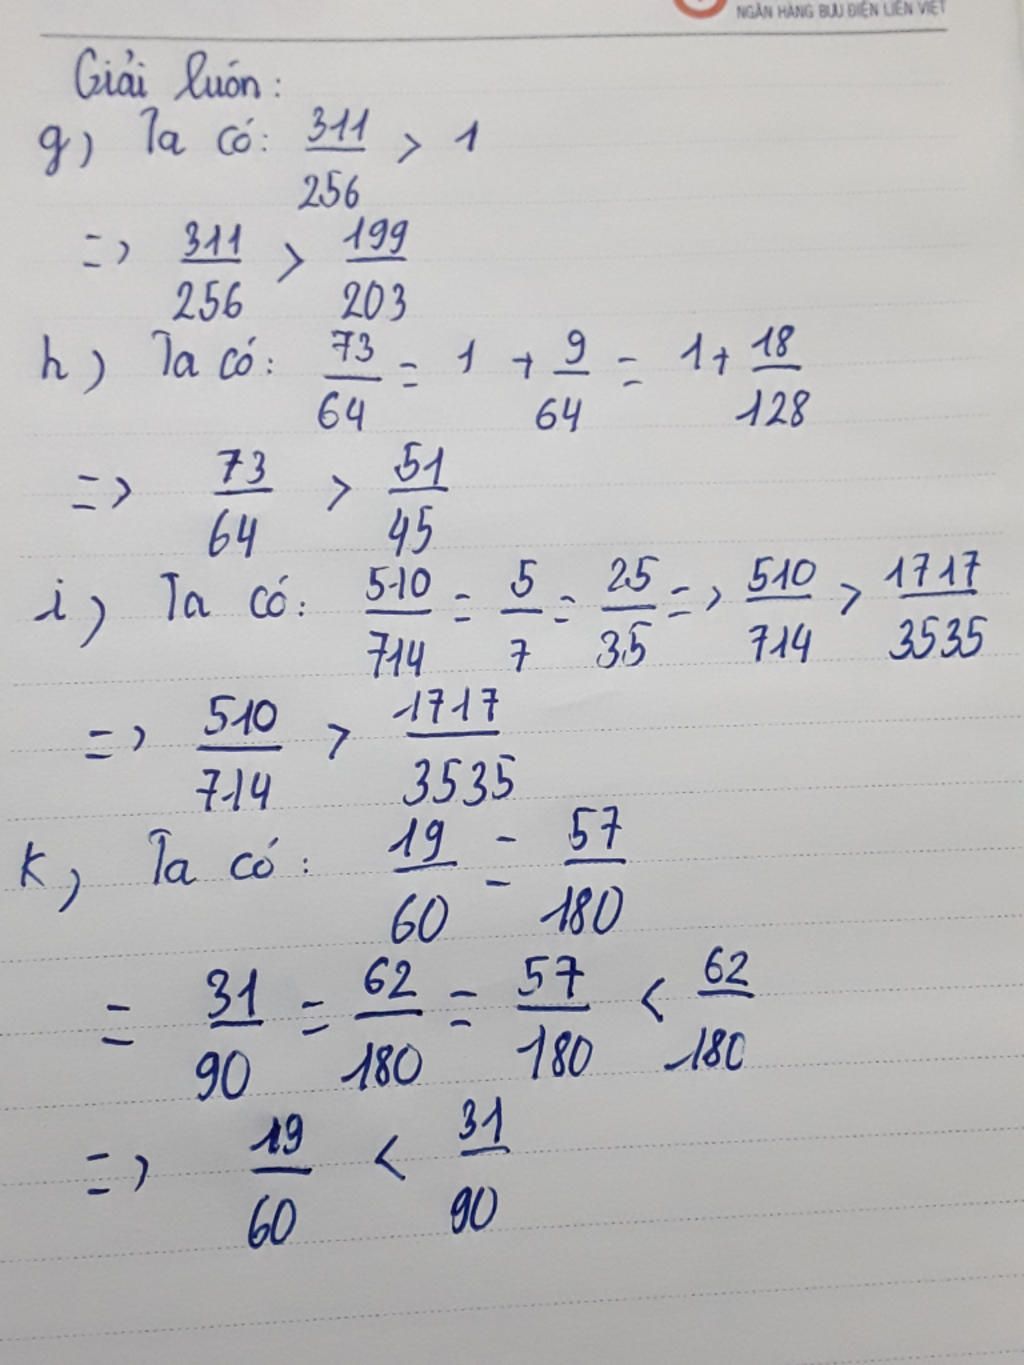 NGÂN HÀNG BƯU ĐIỆN LIÊN VIỆT
Giải luôn:
g) Ta có: 311/256 > 1
=> 311/256 > 199/203
h) Ta có: 73/64 = 1 + 9/64 = 1 + 18/128
=> 73/64 > 51/45
i) Ta có: 510/714 = 5/7 = 25/35 => 510/714 > 1717/3535
=> 510/714 > 1717/3535
k) Ta có: 19/60 = 57/180
= 31/90 = 62/180 = 57/180 < 62/180
=> 19/60 < 31/90